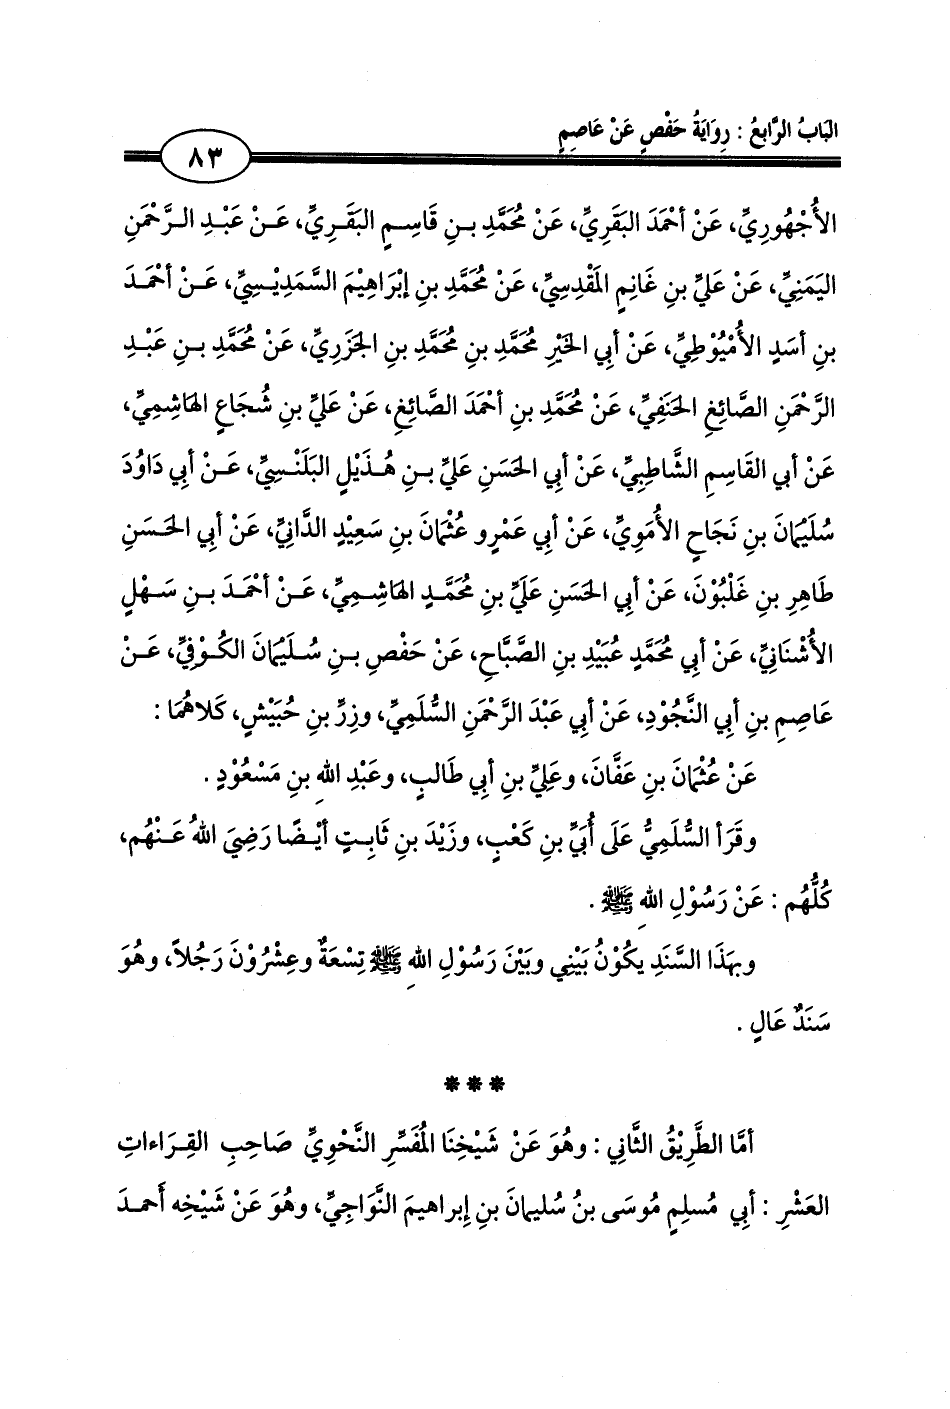 البَابُ الرَّابعُ : رِوَايَةُ حَفْصٍ عَنْ عَاصِمٍ
٨٣
الأُجْهُورِيِّ، عَنْ أحْمَدَ البَقَرِيِّ، عَنْ مُحَمَّدِ بـنِ قَاسِـمٍ البَقَـرِيِّ، عَـنْ عَبْـدِ الـرَّحْمَنِ
اليَمَنِيِّ، عَنْ عَليِّ بنِ غَانِمٍ المَقْدِسِيِّ، عَنْ مُحَمَّدِ بنِ إبْرَاهِيْمَ السَّمَدِيْـسِيِّ، عَـنْ أحْمَـدَ
بنِ أسَدٍ الأُمْيُوْطِيِّ، عَنْ أبي الخَيْرِ مُحَمَّدِ بنِ مُحَمَّدِ بنِ الجَزَرِيِّ، عَنْ مُحَمَّدِ بـنِ عَبْـدِ
الرَّحْمَنِ الصَّائِغِ الحَنَفِيِّ، عَنْ مُحَمَّدِ بنِ أحْمَدَ الصَّائِغِ، عَنْ عَليِّ بنِ شُجَاعٍ الهَاشِمِيِّ،
عَنْ أبي القَاسِمِ الشَّاطِبِيِّ، عَنْ أبِي الحَسَنِ عَليِّ بـنِ هُـذَيْلٍ البَلَنْـسِيِّ، عَـنْ أبي دَاوُدَ
سُلَيْمَانَ بنِ نَجَاحٍ الأُمَوِيِّ، عَنْ أبِي عَمْرٍو عُثْمَانَ بنِ سَعِيْدٍ الدَّانِيِّ، عَنْ أبي الحَسَنِ
طَاهِرِ بنِ غَلْبُوْنَ، عَنْ أبي الحَسَنِ عَليِّ بنِ مُحَمَّـدٍ الهَاشِـمِيِّ، عَـنْ أحْمَـدَ بـنِ سَـهْلٍ
الأشْنَانِيِّ، عَنْ أبِي مُحَمَّدٍ عُبَيْدِ بنِ الصَّبَّاحِ، عَنْ حَفْصِ بـنِ سُـلَيْمَانَ الكُـوْفِيِّ، عَـنْ
عَاصِمِ بنِ أبي النَّجُوْدِ، عَنْ أبي عَبْدَ الرَّحْمَنِ السُّلَمِيِّ، وزِرِّ بنِ حُبَيْشٍ، كَلاهُمَا :
عَنْ عُثْمَانَ بنِ عَفَّانَ، وعَليِّ بنِ أبي طَالبٍ، وعَبْدِ اللهِ بنِ مَسْعُوْدٍ .
وقَرَأ السُّلَمِيُّ عَلَى أُبَيِّ بنِ كَعْبٍ، وزَيْدَ بنِ ثَابـتٍ أيْـضًا رَضِيَ اللهُ عَـنْهُم،
كُلُّهُم : عَنْ رَسُوْلِ اللهِ ﷺ .
وبهَذَا السَّنَدِ يكُوْنُ بَيْنِي وبَيْنَ رَسُوْلِ اللهِ ﷺ تِسْعَةٌ وعِشْرُوْنَ رَجُلاً، وهُوَ
سَنَدٌ عَالٍ .
***
أمَّا الطَّرِيْقُ الثَّانِي : وهُوَ عَنْ شَيْخِنَا المُفَسِّرِ النَّحْوِيِّ صَاحِبِ القِـرَاءاتِ
العَشْرِ : أبِي مُسلِمٍ مُوسَى بنُ سُليمانَ بنِ إبراهيمَ النَّوَاجِيِّ، وهُوَ عَنْ شَيْخِه أحمـدَ